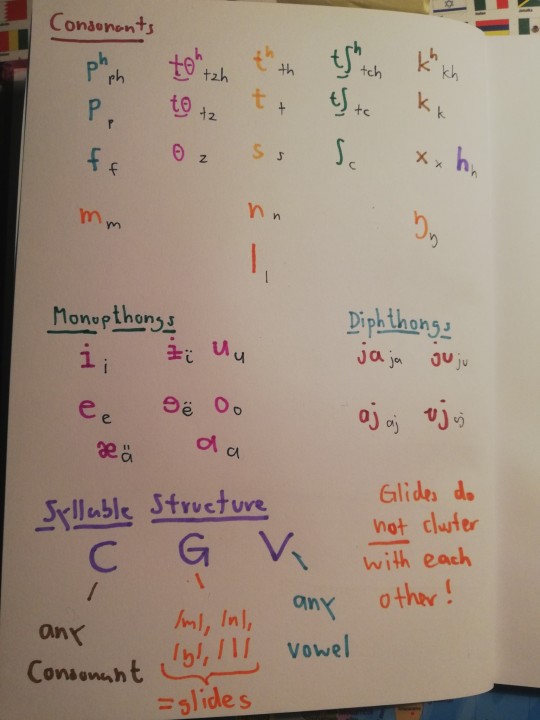 Consonants
pʰ ph t̠θʰ tzh tʰ th t̠ʃʰ tch kʰ kh
p p t̠θ tz t t t̠ʃ tc k k
f f θ z s s ʃ c x x h h
m m n n ŋ ŋ
l l
Monopthongs Diphthongs
i i ɨ ï u u ja ja ju ju
e e ɘ ë o o aj aj uj uj
æ ä ɑ a
Syllable Structure
C G V
any Consonant
/m/, /n/,
/ŋ/, /l/
=glides
any
vowel
Glides do
not cluster
with each
other!